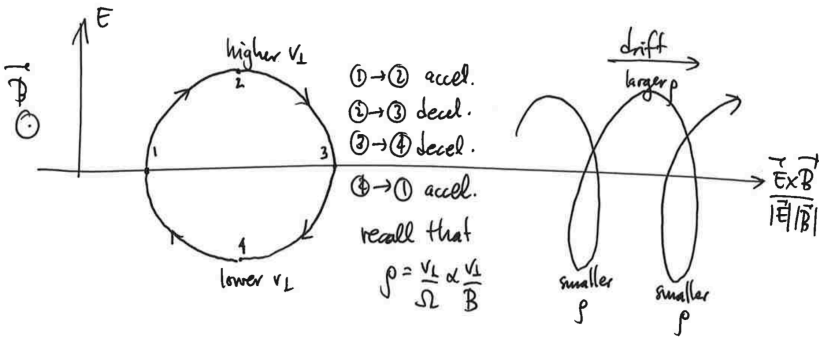 E
B⃗
higher v⊥
2
1
3
4
lower v⊥
① → ② accel.
② → ③ decel.
③ → ④ decel.
④ → ① accel.
recall that
ρ = v⊥/Ω ∝ v⊥/B
drift
larger ρ
smaller ρ
smaller ρ
E⃗×B⃗/|E⃗||B⃗|